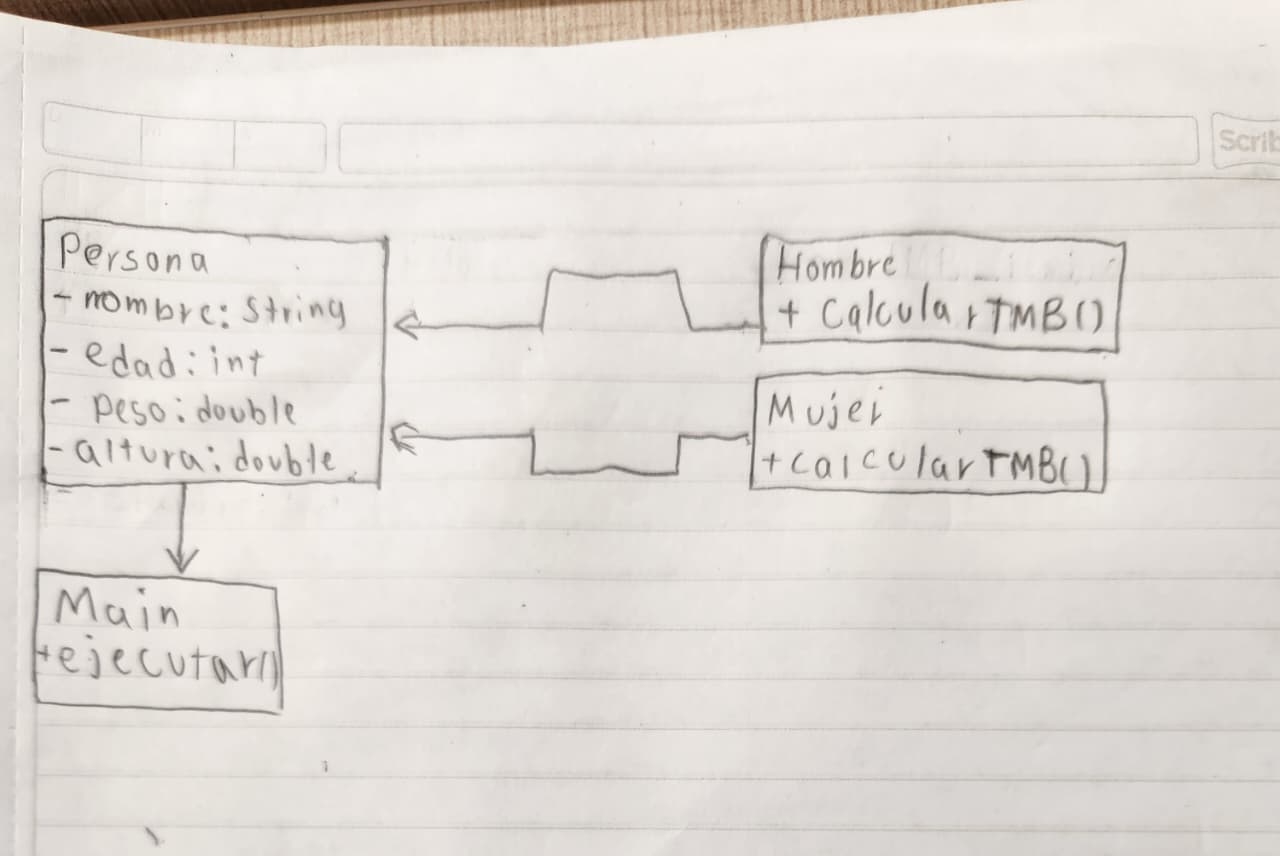 Scrib
Persona
- nombre: String
- edad: int
- peso: double
- altura: double
Hombre
+ CalcularTMB()
Mujer
+calcularTMB()
Main
+ejecutar()